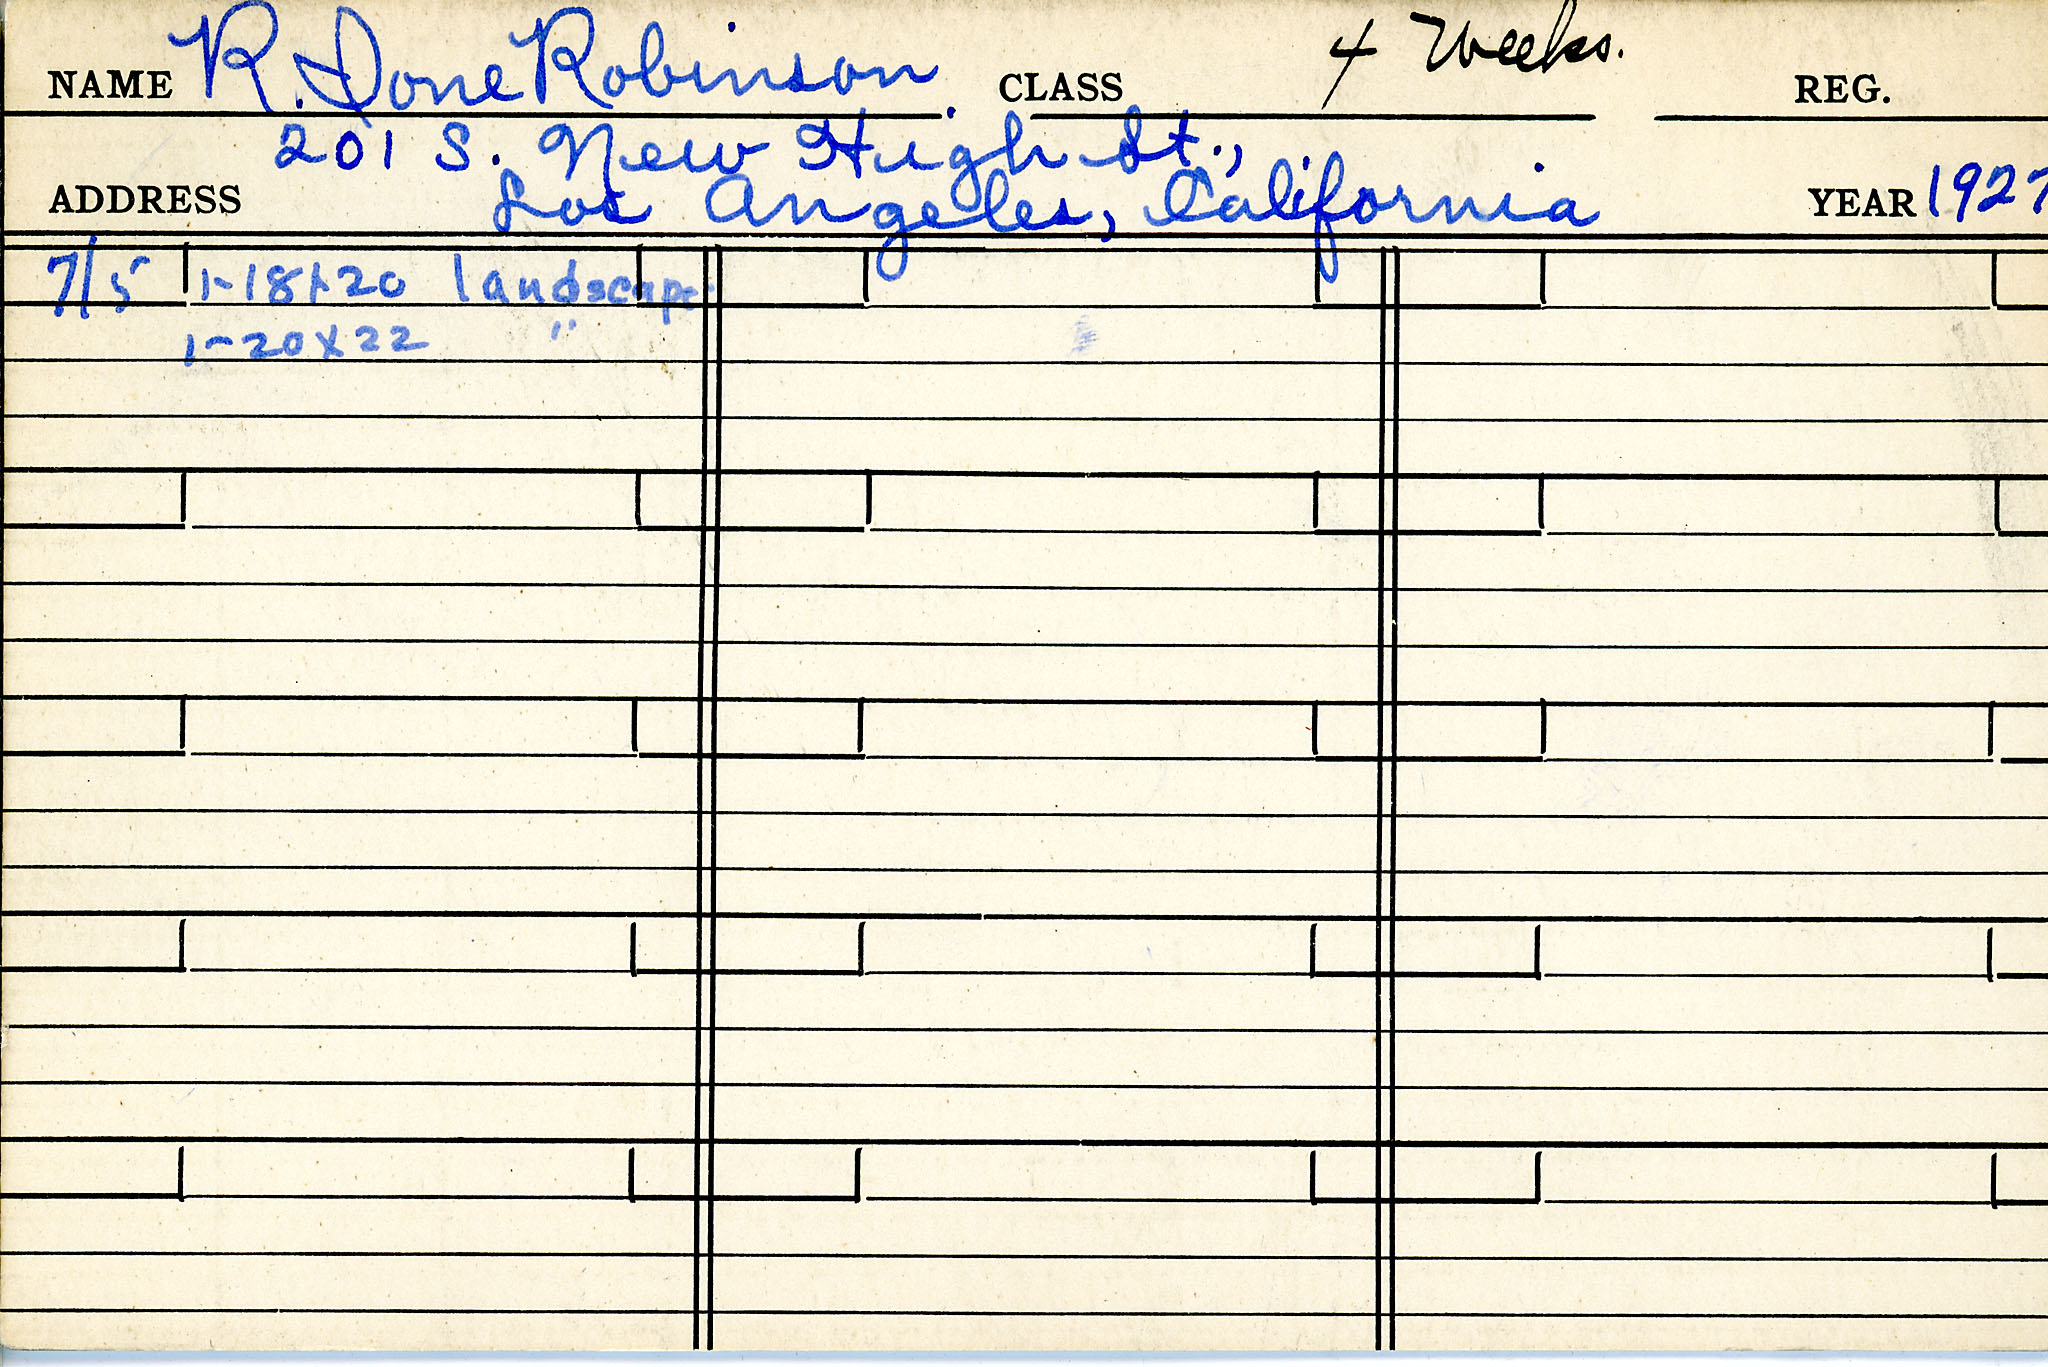 NAME R. Ione Robinson. CLASS 4 Weeks. REG.
201 S. New High St.,
ADDRESS Los Angeles, California YEAR 1927
7/5 1-18x20 landscape
1-20x22 "